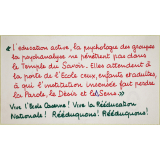 « l'éducation active, la psychologie des groupes
la psychanalyse ne pénètrent pas dans
le Temple du Savoir. Elles attendent à
la porte de l'École ceux, enfants et adultes,
à qui l'institution insensée fait perdre
la Parole, le Désir et le Sens »
Vive l'École Caserne ! Vive la Rééducation
Nationale ! Rééduquons ! Rééduquons !